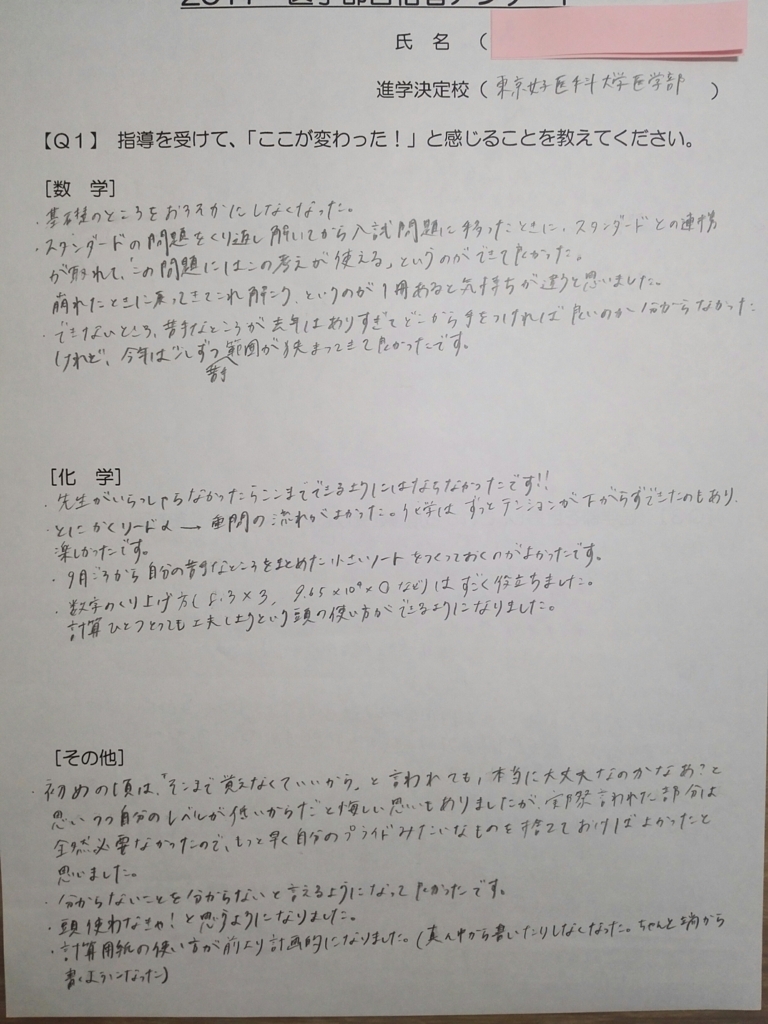 氏 名 (
進学決定校 ( 東京女子医科大学医学部 )
【Q1】 指導を受けて、「ここが変わった!」と感じることを教えてください。
[数 学]
・基礎のところをおろそかにしなくなった。
・スタンダードの問題をくり返し解いてから入試問題に移ったときに、スタンダードとの連携
が取れて、「この問題にはこの考えが使える」というのができて良かった。
崩れたときに戻ってきてこれ解こう、というのが1冊あると気持ちが違うと思いました。
・できないところ、苦手なところが去年はありすぎてどこから手をつければ良いのか分からなかった
けれど、今年は少しずつ範囲が狭まってきて良かったです。
苦手
[化 学]
・先生がいらっしゃらなかったらここまでできるようにはならなかったです!!
・とにかくリードα → 重問の流れがよかった。化学はずっとテンションが下がらずできたのもあり、
楽しかったです。
・9月ごろから自分の苦手なところをまとめた小さいノートをつくっておくのがよかったです。
・数字のくり上げ方( 8.3×3, 9.65×10⁴×0 など)はすごく役立ちました。
計算ひとつとっても工夫しようという頭の使い方ができるようになりました。
[その他]
・初めの頃は、「そこまで覚えなくていいから」と言われても、本当に大丈夫なのかなあ?と
思いつつ自分のレベルが低いからだと悔しい思いもありましたが、実際言われた部分は
全然必要なかったので、もっと早く自分のプライドみたいなものを捨てておけばよかったと
思いました。
・分からないことを分からないと言えるようになって良かったです。
・頭使わなきゃ!と思うようになりました。
・計算用紙の使い方が前より計画的になりました。(真ん中から書いたりしなくなった。ちゃんと端から
書くようになった)